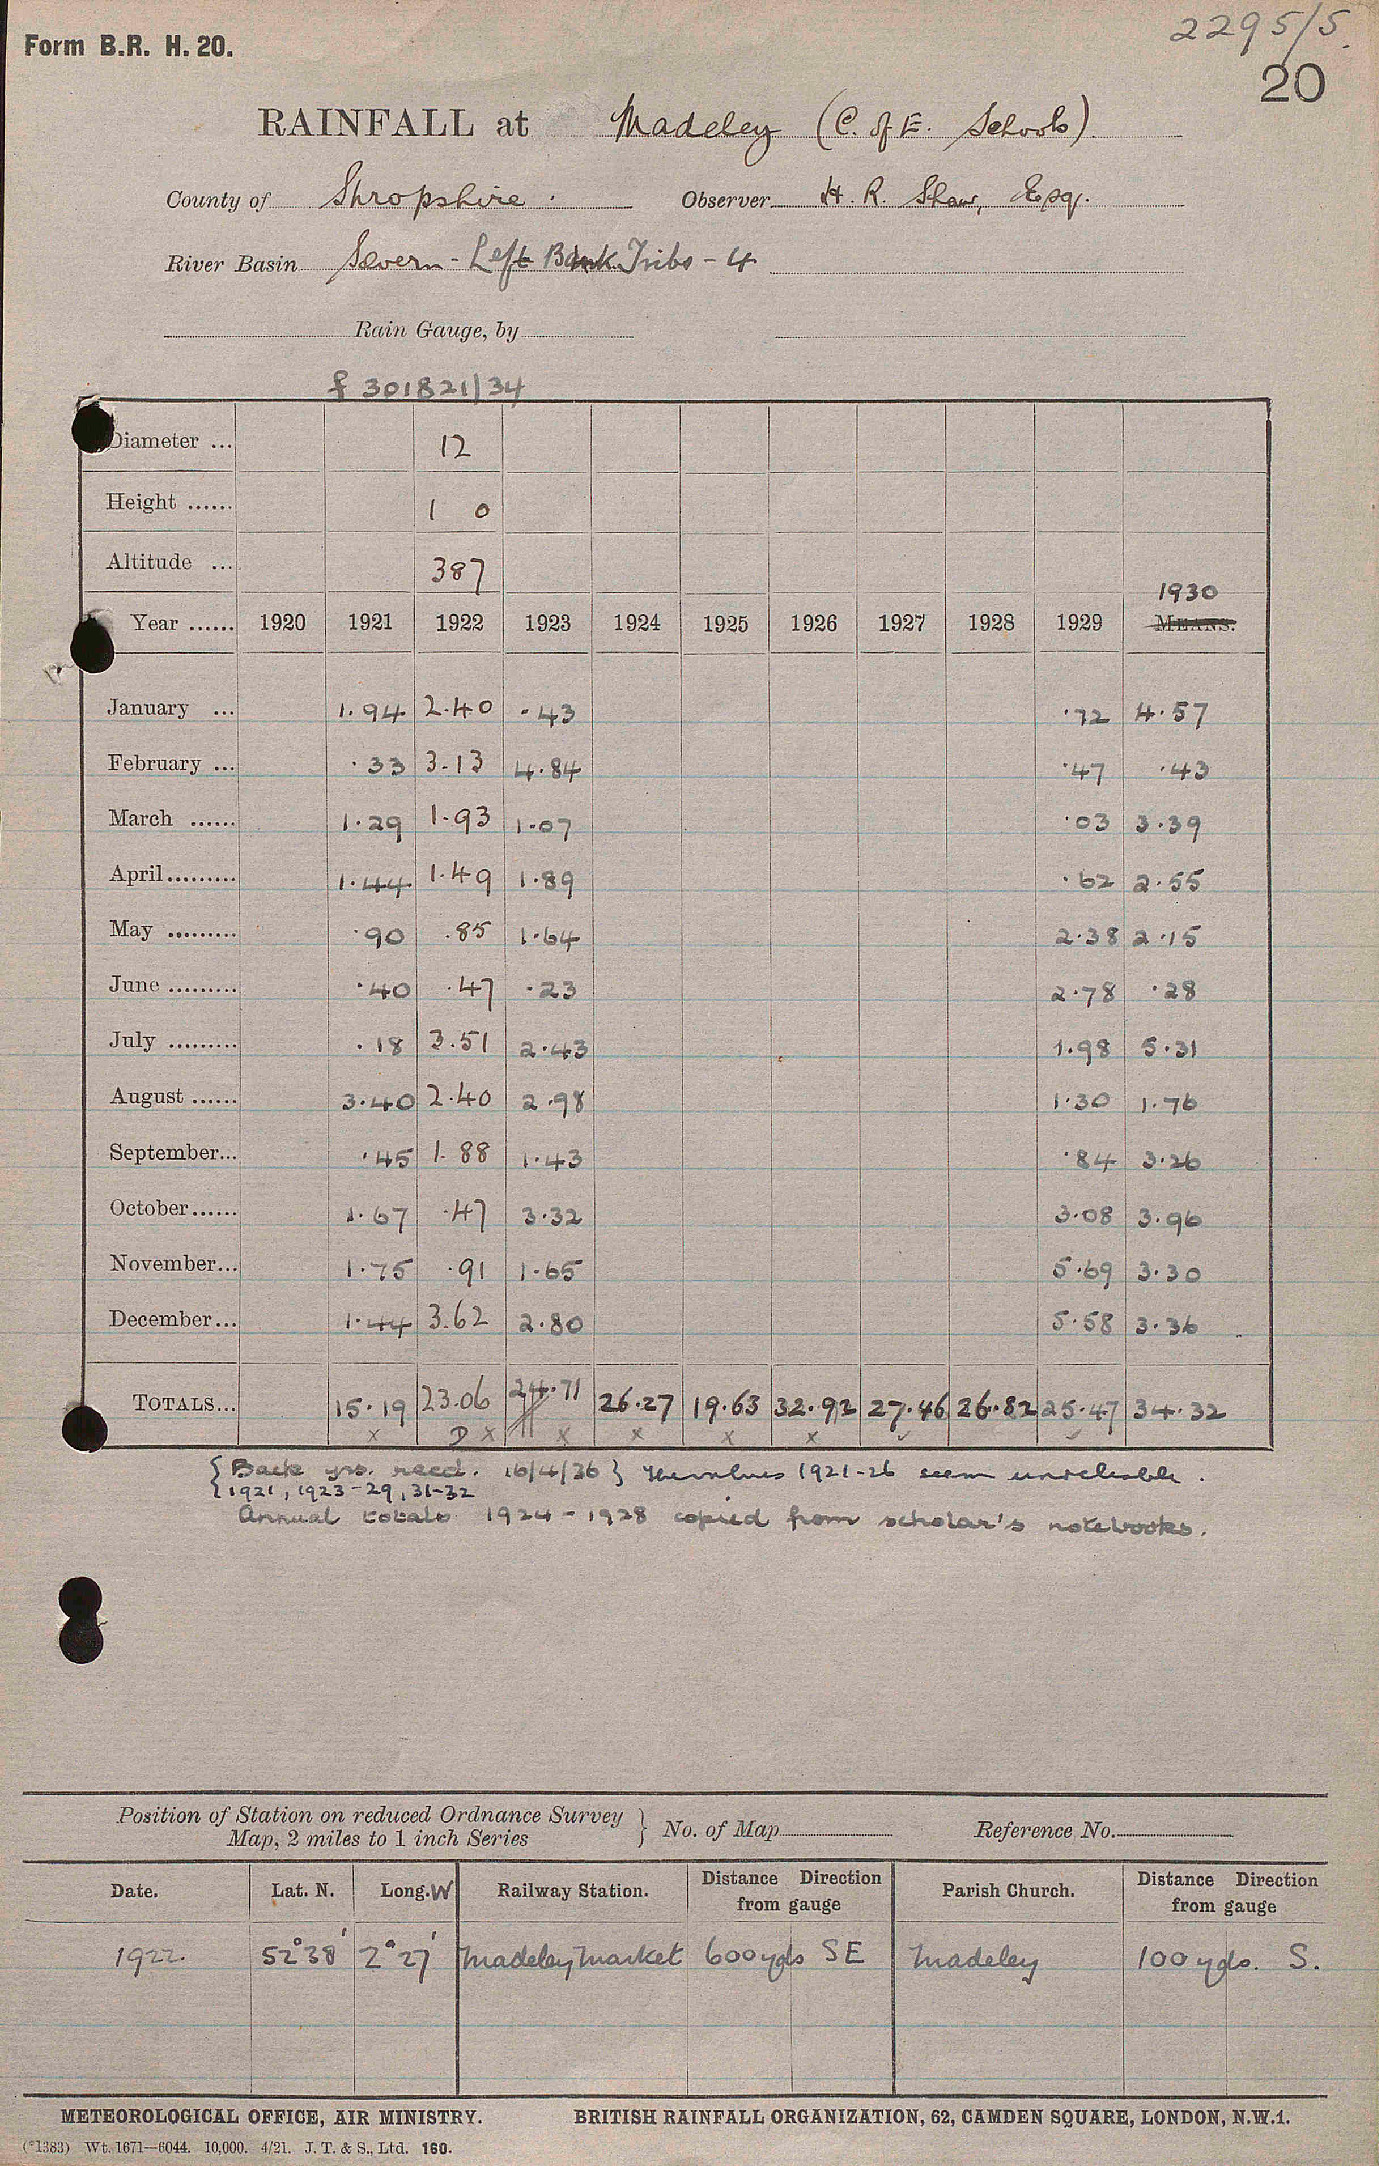 Form B.R. H. 20.
2295/5.
20
RAINFALL at Madeley (C. of E. Schools)
County of Shropshire. Observer H. R. Shaw, Esq.
River Basin Severn - Left Bank Tribs - 4
Rain Gauge, by
f 301821/34
Diameter ... 12
Height ...... 1 0
Altitude ... 387
1930
Year ...... 1920 1921 1922 1923 1924 1925 1926 1927 1928 1929 MEANS.
January ... 1.94 2.40 .43 .72 4.57
February ... .33 3.13 4.84 .47 .43
March ...... 1.29 1.93 1.07 .03 3.39
April......... 1.44 1.49 1.89 .62 2.55
May ......... .90 .85 1.64 2.38 2.15
June ......... .40 .47 .23 2.78 .28
July ......... .18 3.51 2.43 1.98 5.31
August ...... 3.40 2.40 2.98 1.30 1.76
September... .45 1.88 1.43 .84 3.26
October...... 1.67 .47 3.32 3.08 3.96
November... 1.75 .91 1.65 5.69 3.30
December... 1.44 3.62 2.80 5.58 3.36
TOTALS... 15.19 23.06 24.71 26.27 19.63 32.92 27.46 26.82 25.47 34.32
x D x x x x x ✓ ✓
{Back yrs. recd. 16/4/36} The values 1921-26 seem unreliable.
{1921, 1923-29, 31-32
Annual totals 1924-1928 copied from scholar's notebooks.
Position of Station on reduced Ordnance Survey
Map, 2 miles to 1 inch Series } No. of Map Reference No.
Date. Lat. N. Long. W Railway Station. Distance Direction from gauge Parish Church. Distance Direction from gauge
1922. 52°38' 2°27' Madeley Market 600 yds SE Madeley 100 yds. S.
METEOROLOGICAL OFFICE, AIR MINISTRY. BRITISH RAINFALL ORGANIZATION, 62, CAMDEN SQUARE, LONDON, N.W.1.
(*1383) Wt. 1671—6044. 10,000. 4/21. J. T. & S., Ltd. 160.